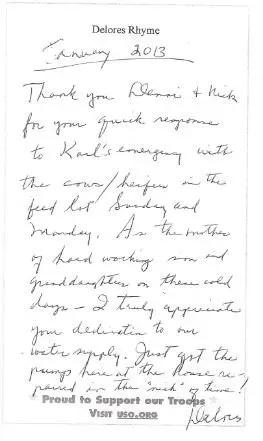 Delores Rhyme
January 2013
Thank you Denni & Nick
for your quick response
to Karl's emergency with
the cows/heifers in the
feed lot Sunday and
Monday. As the mother
of hard working son and
granddaughters on these cold
days – I truly appreciate
your dedication to our
water supply. Just got the
pumps here at the house re-
paired in the "nick" of time!
Proud to Support our Troops
VISIT USO.ORG
Delores